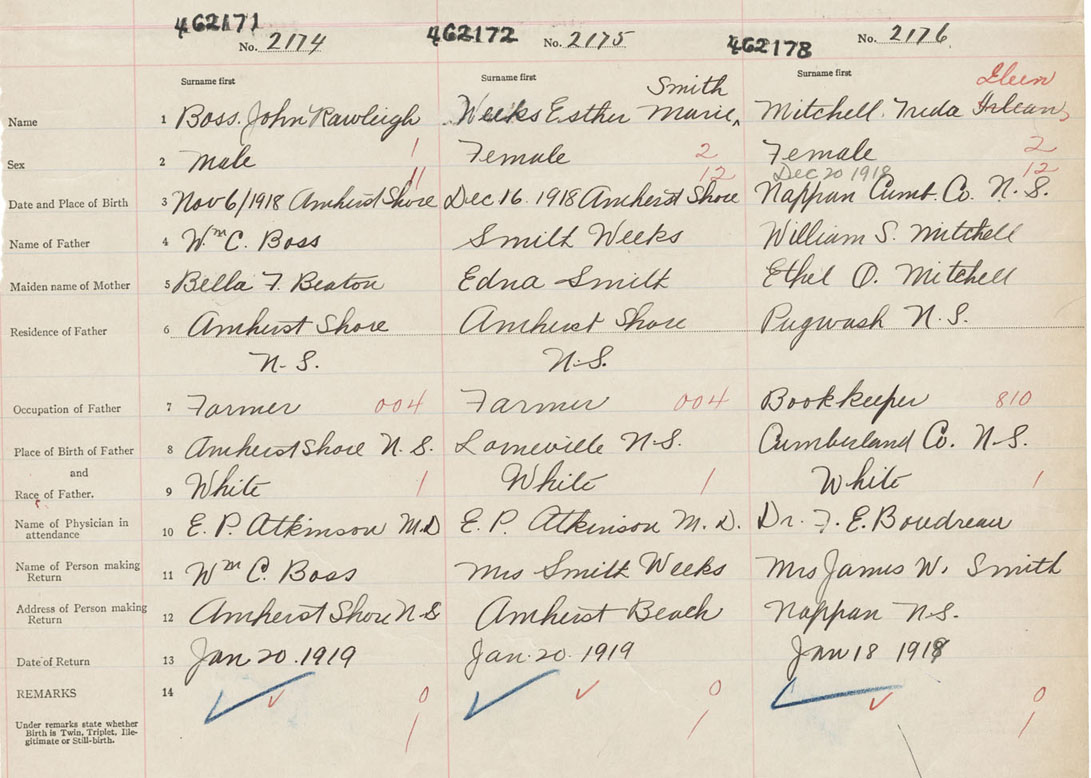 462171 462172 462178
No. 2174 No. 2175 No. 2176
Surname first Surname first Surname first
Smith Eleen
Name 1 Boss. John Rawleigh Weeks Esther Marie, Mitchell. Treda
Sex 2 Male 1 Female 2 Female 2
11 12 Dec 20 1918 12
Date and Place of Birth 3 Nov 6/1918 Amherst Shore Dec 16. 1918 Amherst Shore Nappan Cumb. Co. N. S.
Name of Father 4 Wm C. Boss Smith Weeks William S. Mitchell
Maiden name of Mother 5 Bella F. Beaton Edna Smith Ethel O. Mitchell
Residence of Father 6 Amherst Shore Amherst Shore Pugwash N. S.
N. S. N. S.
Occupation of Father 7 Farmer 004 Farmer 004 Bookkeeper 810
Place of Birth of Father 8 Amherst Shore N. S. Lorneville N. S. Cumberland Co. N. S.
and
Race of Father. 9 White 1 White 1 White 1
Name of Physician in
attendance 10 E. P. Atkinson M.D E. P. Atkinson M. D. Dr. F. E. Boudreau
Name of Person making
Return 11 Wm C. Boss Mrs Smith Weeks Mrs James W. Smith
Address of Person making
Return 12 Amherst Shore N S Amherst Beach Nappan N. S.
Date of Return 13 Jan. 20. 1919 Jan. 20. 1919 Jan 18 1919
REMARKS 14 0 0 0
Under remarks state whether
Birth is Twin, Triplet, Ille-
gitimate or Still-birth. 1 1 1